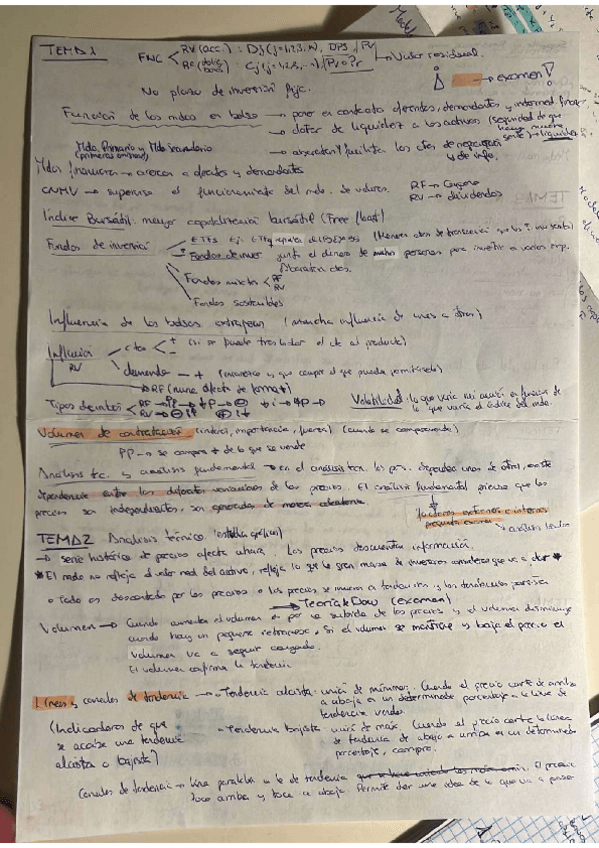 TEMA 1
FNC RV (acc.) : Dj (j=1,2,3,..n), DPS, Pv
RF (oblig. bonos) : Cj (j=1,2,3,..n) Pv o Pr → Valor residual
→ examen!
No plazo de inversión fijo.
Función de los mdos en bolsa → poner en contacto oferentes, demandantes y intermed. financ.
→ dotar de liquidez a los activos (seguridad de que
Mdo. Primario y Mdo Secundario
(primeras emisiones)
→ abaratan/facilita los ctes de negociación
y de info.
Mdos. financieros → acercar a ofertas y demandantes
CNMV → supervisa el funcionamiento del mdo. de valores.
RF → Cupones
RV → dividendos
Índice Bursátil: mayor capitalización bursátil (Free float)
Fondos de inversión
ETFs Ej: ETF replica el IBEX35
Fondos de inver junta el dinero de muchas personas para invertir a varias emp.
Fondos mixtos RF
RV
Fondos sostenibles
Influencia de las bolsas extranjeras (mucha influencia de unas a otras)
Inflación ctes + - (si se puede trasladar el cte al producto)
RV
demanda → +
RF (nunca afecta de forma +)
Tipos de interés RF RV
Volatilidad: lo que varía mi acción en función de
lo que varía el índice del mdo.
Volumen de contratación (interés, importancia, fuerza) (cuando se compra/vende)
PP → se compra + de lo que se vende
Análisis tc. y análisis fundamental → en el análisis tcn. los prc. dependen unos de otros, existe
dependencia entre las diferentes variaciones de los precios. El análisis fundamental piensa que los
precios son independientes, son generados de manera aleatoria.
factores externos e internos
pregunta examen
TEMA 2 Análisis técnico (estudia gráficos)
→ serie histórica de precios afecta ahora. Los precios descuentan información.
* El mdo no refleja el valor real del activo, refleja lo que la gran masa de inversores considera que va a dar *
○ Todo es descontado por los precios ○ los precios se mueven a tendencias y las tendencias persisten
→ Teoría de Dow (examen)
Volumen → Cuando aumenta el volumen es por la subida de los precios y el volumen disminuye
cuando hay un pequeño retroceso. Si el volumen se mantiene y baja el prc. el
volumen va a seguir cayendo.
El volumen confirma la tendencia
Líneas y canales de tendencia → Tendencia alcista: unión de mínimos. Cuando el precio corte de arriba
a abajo en un determinado porcentaje a la línea de
tendencia vendo.
(Indicadores de que
se acabe una tendencia
alcista o bajista)
→ Tendencia bajista: unión de máx. Cuando el precio corte la línea
de tendencia de abajo a arriba en un determinado
porcentaje, compro.
Canales de tendencia → línea paralela a la de tendencia El precio
toca arriba y toca a abajo. Permite dar una idea de lo que va a pasar